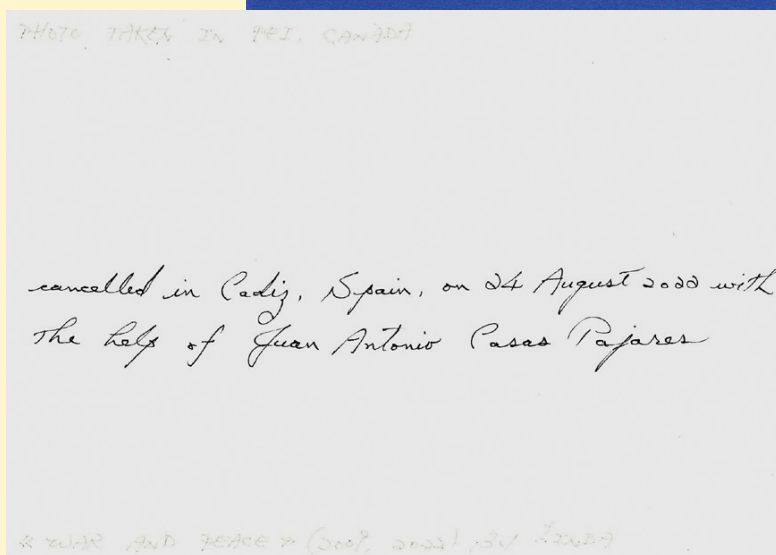 PHOTO TAKEN IN PEI, CANADA
cancelled in Cadiz, Spain, on 24 August 2022 with
the help of Juan Antonio Casas Pajares
« WAR AND PEACE » (2009, 2022), BY LINDA